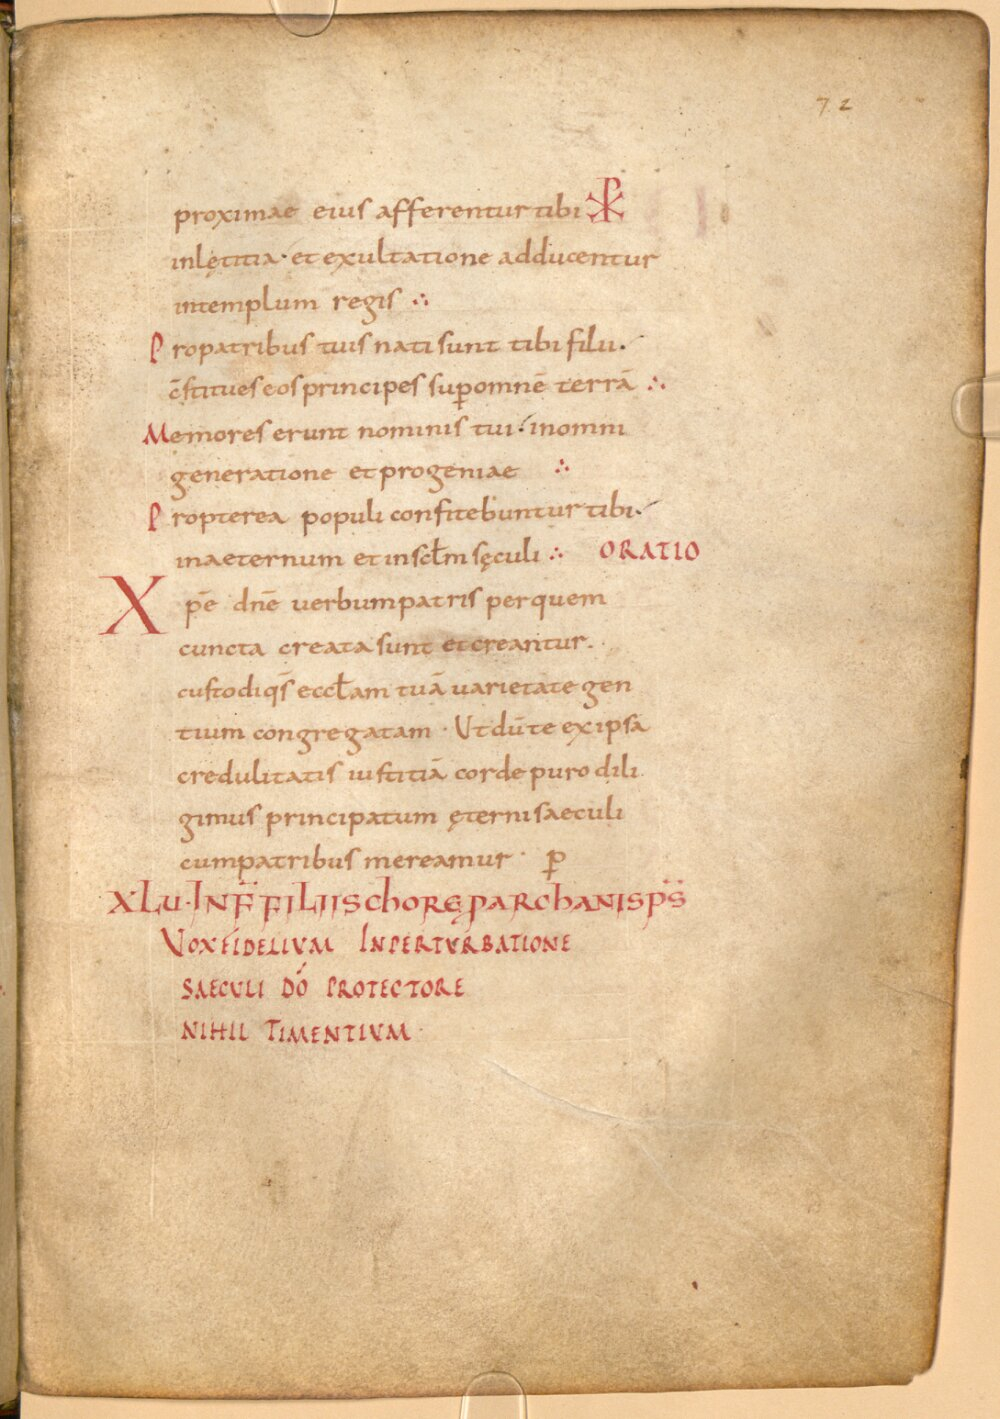 72
proximae eius afferentur tibi ⳩
inlętitia · et exultatione adducentur
intemplum regis ∴
Propatribus tuis nati sunt tibi filii.
c̄stitues eos principes sup̱omnē terrā ∴
Memores erunt nominis tui : inomni
generatione et progeniae ∴
Propterea populi confitebuntur tibi.
inaeternum et insclm̄ sęculi ∴ ORATIO
Xpē dn̄e uerbum patris per quem
cuncta creata sunt et creantur.
custodi qs̄ eccl̄am tuā uarietate gen
tium congregatam · Ut dū te ex ipsa
credulitatis iustitiā corde puro dili
gimus principatum ęterni saeculi
cum patribus mereamur · p̱
XLU · IN F̄F̄ FILIIS chORę PARchANIS PS̄
VOX FIDELIUM INPERTURBATIONE
SAECULI DŌ PROTECTORE
NIHIL TIMENTIUM ·